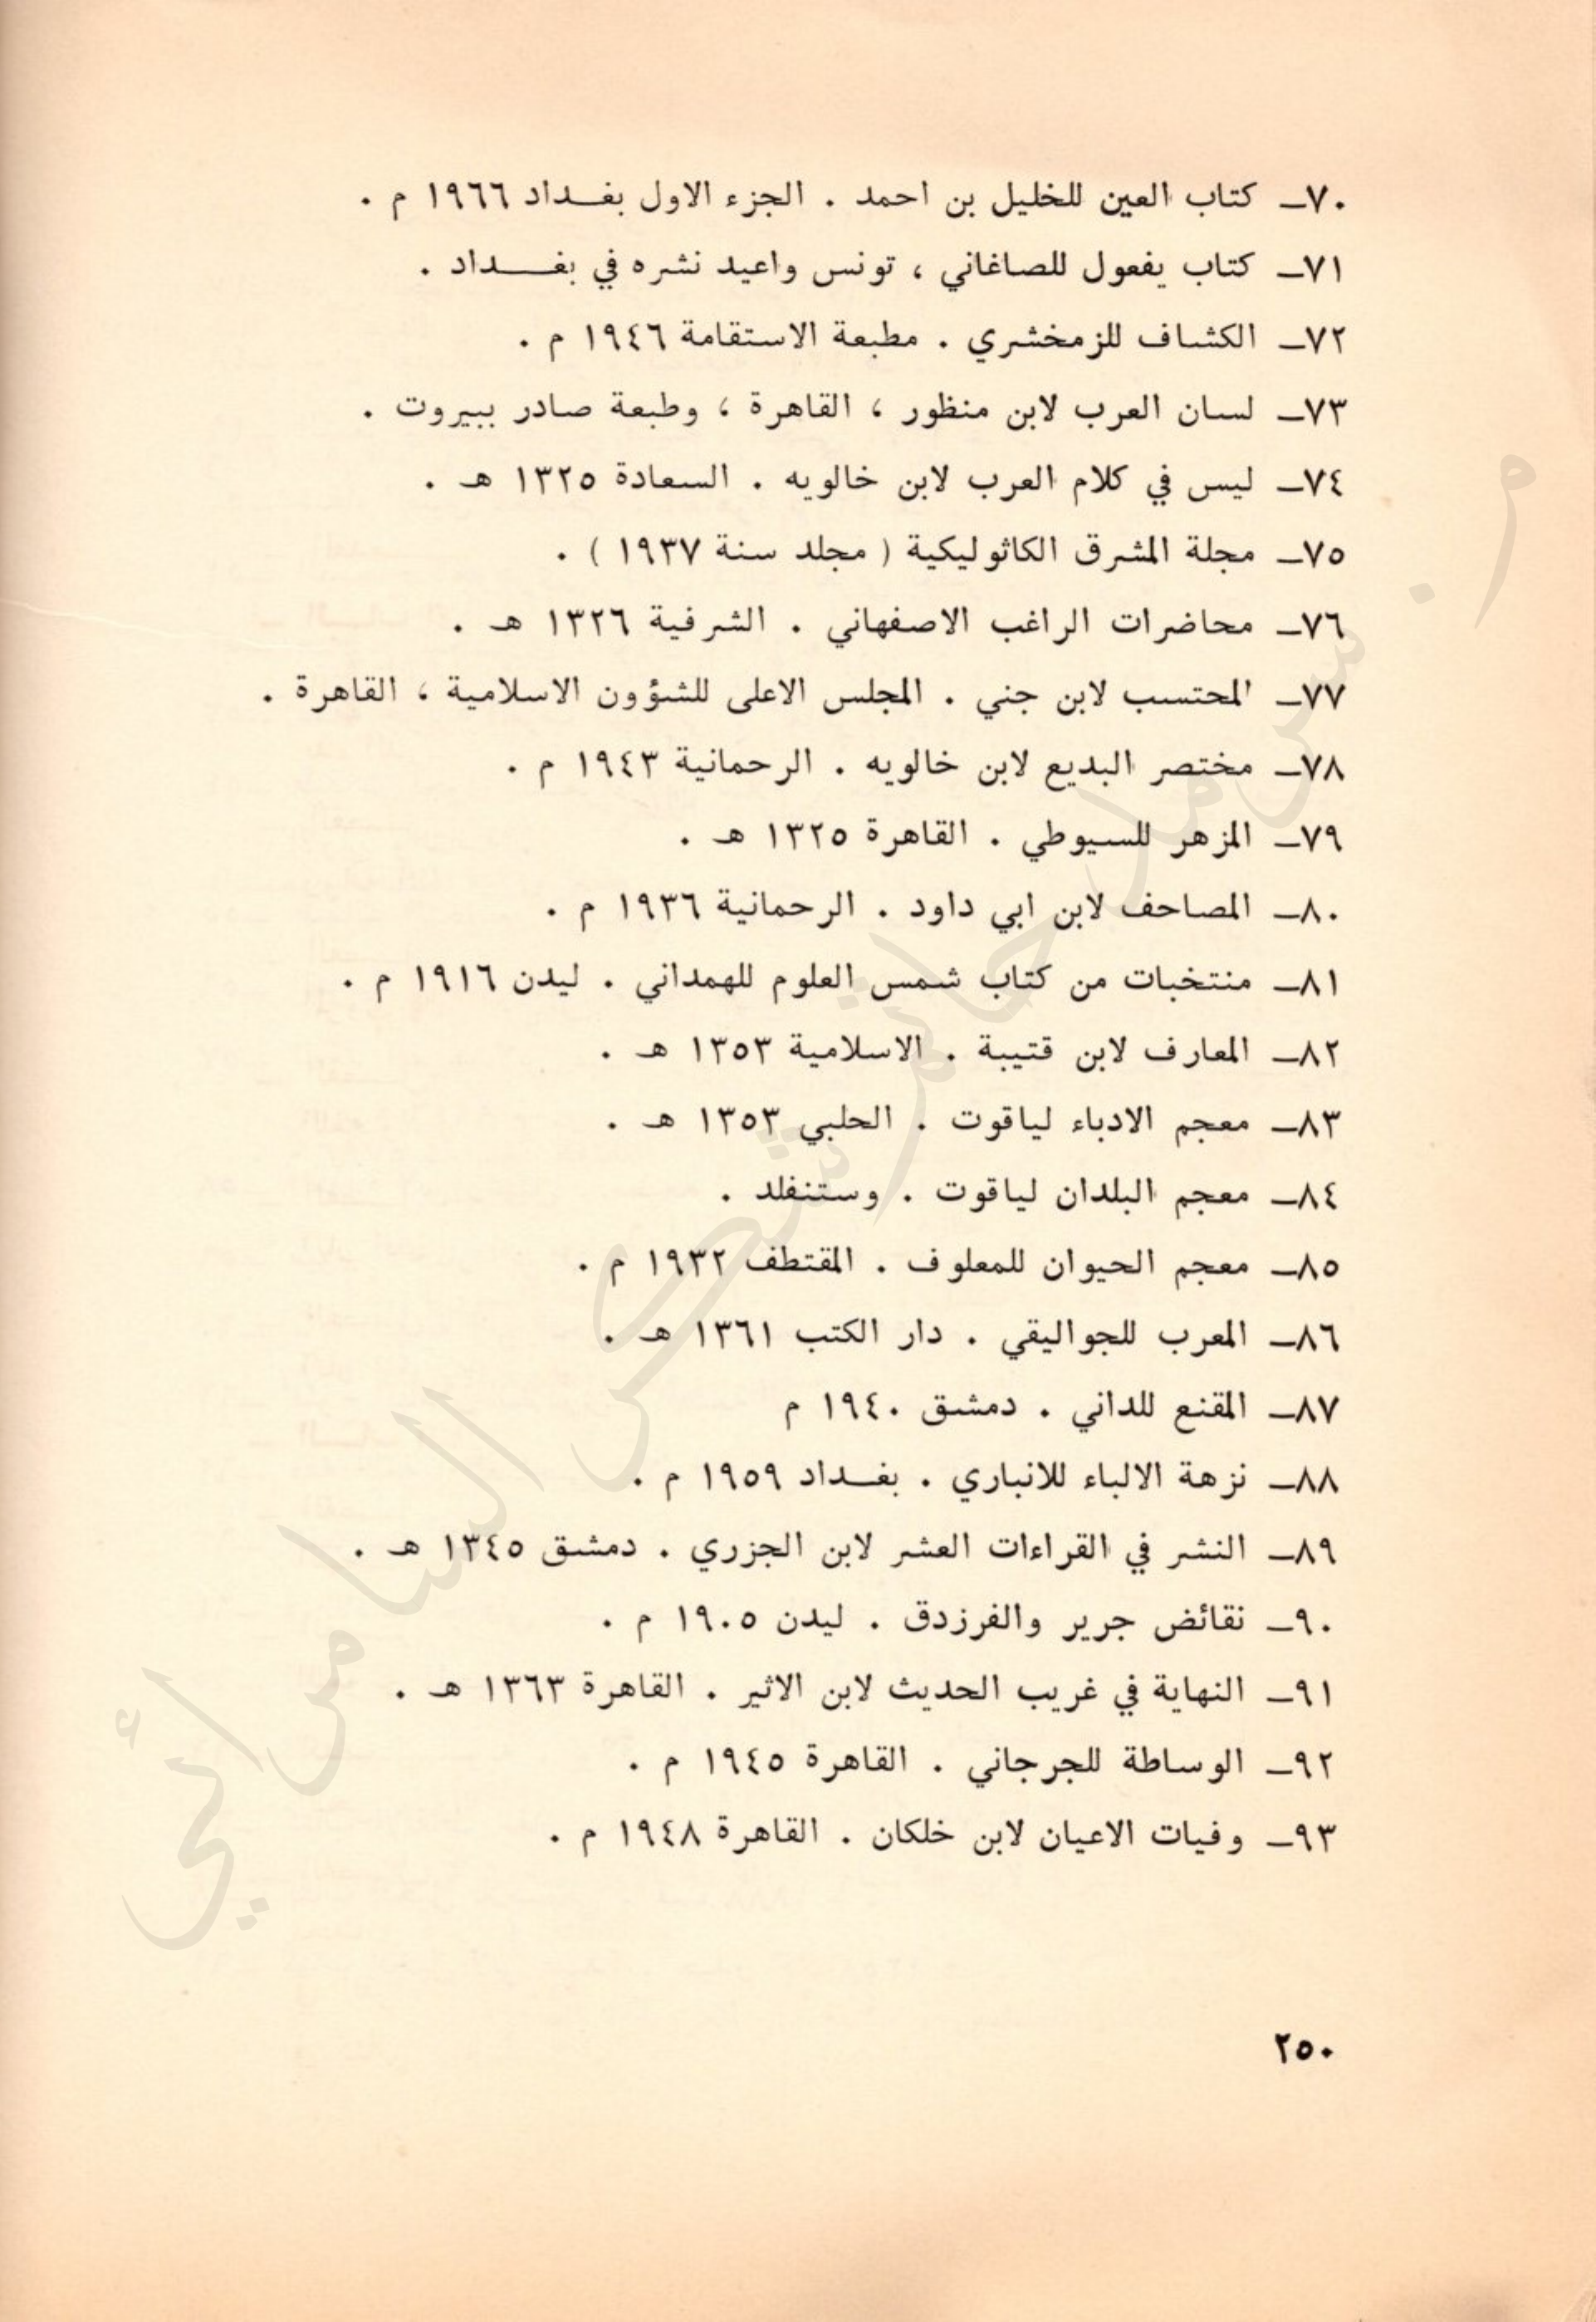 ٧٠ـ كتاب العين للخليل بن احمد . الجزء الاول بغداد ١٩٦٦ م .
٧١ـ كتاب يفعول للصاغاني ، تونس واعيد نشره في بغداد .
٧٢ـ الكشاف للزمخشري . مطبعة الاستقامة ١٩٤٦ م .
٧٣ـ لسان العرب لابن منظور ، القاهرة ، وطبعة صادر ببيروت .
٧٤ـ ليس في كلام العرب لابن خالويه . السعادة ١٣٢٥ هـ .
٧٥ـ مجلة المشرق الكاثوليكية ( مجلد سنة ١٩٣٧ ) .
٧٦ـ محاضرات الراغب الاصفهاني . الشرفية ١٣٢٦ هـ .
٧٧ـ المحتسب لابن جني . المجلس الاعلى للشؤون الاسلامية ، القاهرة .
٧٨ـ مختصر البديع لابن خالويه . الرحمانية ١٩٤٣ م .
٧٩ـ المزهر للسيوطي . القاهرة ١٣٢٥ هـ .
٨٠ـ المصاحف لابن ابي داود . الرحمانية ١٩٣٦ م .
٨١ـ منتخبات من كتاب شمس العلوم للهمداني . ليدن ١٩١٦ م .
٨٢ـ المعارف لابن قتيبة . الاسلامية ١٣٥٣ هـ .
٨٣ـ معجم الادباء لياقوت . الحلبي ١٣٥٣ هـ .
٨٤ـ معجم البلدان لياقوت . وستنفلد .
٨٥ـ معجم الحيوان للمعلوف . المقتطف ١٩٣٢ م .
٨٦ـ المعرب للجواليقي . دار الكتب ١٣٦١ هـ .
٨٧ـ المقنع للداني . دمشق ١٩٤٠ م
٨٨ـ نزهة الالباء للانباري . بغداد ١٩٥٩ م .
٨٩ـ النشر في القراءات العشر لابن الجزري . دمشق ١٣٤٥ هـ .
٩٠ـ نقائض جرير والفرزدق . ليدن ١٩٠٥ م .
٩١ـ النهاية في غريب الحديث لابن الاثير . القاهرة ١٣٦٣ هـ .
٩٢ـ الوساطة للجرجاني . القاهرة ١٩٤٥ م .
٩٣ـ وفيات الاعيان لابن خلكان . القاهرة ١٩٤٨ م .
٢٥٠